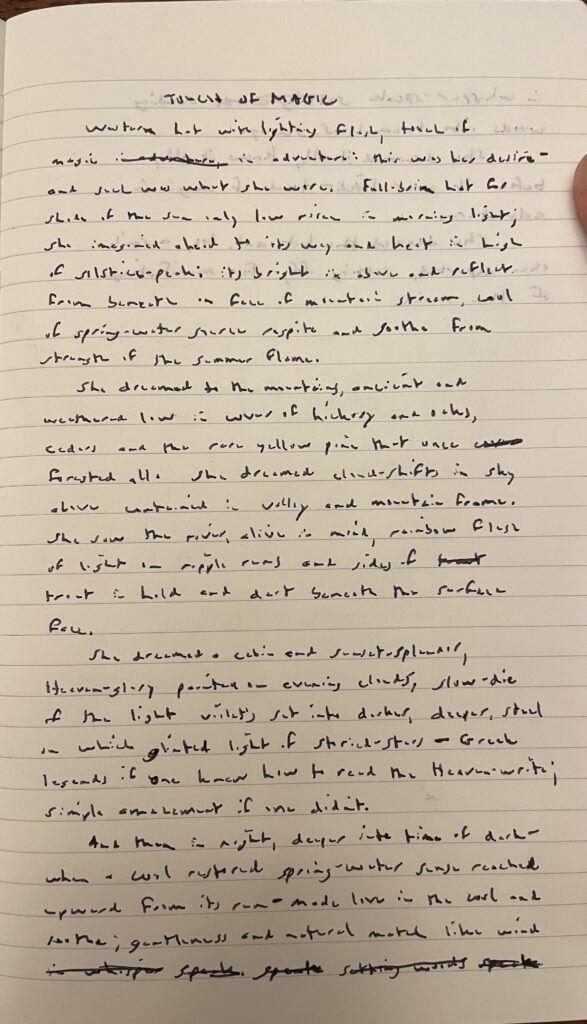 TOUCH OF MAGIC
Western hat with lighting flash, touch of
magic in adventure, in adventure: this was her desire-
and such was what she wore. Full-brim hat for
shade of the sun only low risen in morning light;
she imagined ahead to its way and heat in high
of solstice-peak: its bright in above and reflect
from beneath on face of mountain stream, cool
of spring-water source respite and soothe from
strength of the summer flame.
She dreamed to the mountains, ancient and
weathered low in cover of hickory and oaks,
cedars and the rare yellow pine that once
forested all. She dreamed cloud-shifts in sky
above contained in valley and mountain frame.
She saw the river, alive in mind, rainbow flash
of light on ripple runs and sides of trout
trout in hold and dart beneath the surface
face.
She dreamed a cabin and sunset-splendor,
Heaven-glory painted on evening clouds, slow-die
of the light violets set into darker, deeper, steel
on which glinted light of storied-stars - Greek
legends if one knew how to read the Heaven-write;
simple amazement if one didn't.
And then in night, deeper into time of dark-
when a cool restored spring-water sense reached
upward from its run-made live in the cool and
soothe; gentleness and natural match like wind
in whisper speak. speak words speak